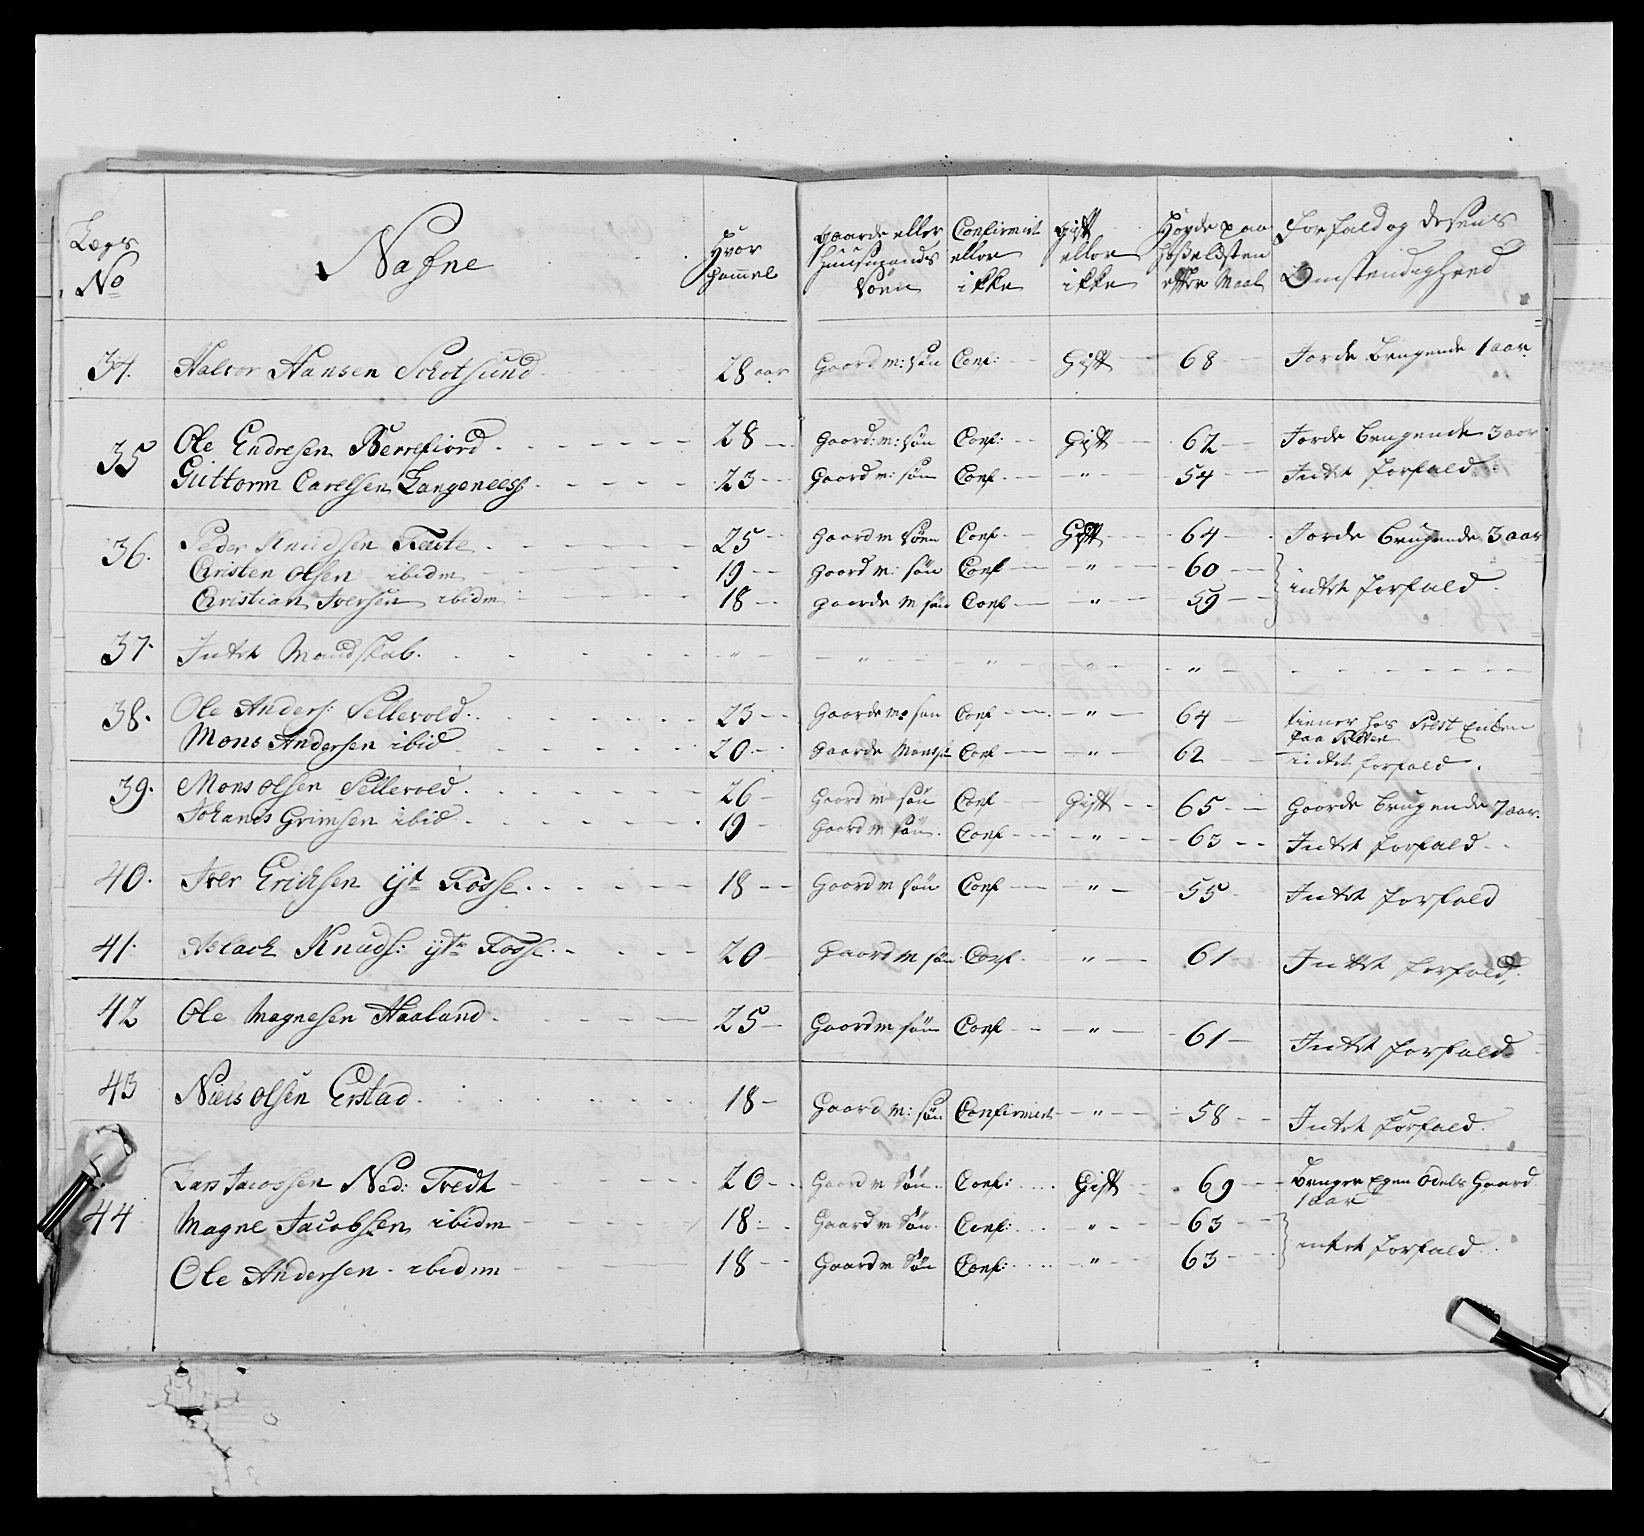 Lægs No | Nafne | Hvor Gammel | Gaarde eller Huusmands Søen | Confirmert eller ikke | Gift eller ikke | Høyde paa eftter Maal | Forfald og desens Omstendigheed
34. | Halvor Hansen Schotsund | 28 aar | Gaord m: søn | Conf: | Gift | 68 | Jorde Brugende 1 aar
35 | Ole Endresen Berrefiord | 28 | Gaord: m: søn | Conf: | Gift | 62 | Jorde brugende 3 aar
Guttorm Carelsen Langenees | 23 | Gaord m: søn | Conf | " | 54 | Indtet forfald
36. | Peder Knudsen Teite | 25 | Gaord m søen | Conf | Gift | 64 | Jorde Brugende 3 aar
Christen Olsen ibidm | 19 | Gaord m: søn | Conf | " | 60 | indtet forfald
Christian Iversen ibidm | 18 | Gaarde m søn | Conf | " | 59
37. | Indtet Mandskab. | " | " | " | " | "
38. | Ole Anders: Sellevold | 23 | Gaorde m: søn | Conf | " | 64 | tienner hos Prest paa
Mons Andersen ibid | 20 | Gaarde Mansøn | Conf | " | 62 | indtet forfald.
39. | Mons Olsen Sellevold | 26 | Gaord m søn | Conf | Gift | 65 | Gaorde brugende 7 aar.
Johanes Grimsen ibid | 19 | Gaord m søn. | Conf | " | 63 | Indtet forfald
40. | Iver Erichsen yt Fosse | 18 | Gaord m søn | Conf | " | 55 | Indtet forfald
41. | Aslach Knuds: ytr Fosse | 20 | Gaord m søn | Conf | " | 61 | Indtet forfald
42 | Ole Magnesen Haaland | 25 | Gaord m søn | Conf | " | 61 | Indtet forfald
43 | Niels Olsen Erstad | 18 | Gaord m: søn | Confirmert | " | 58 | Indtet forfald.
44 | Lars Jacobsen Ned: Tvedt | 20 | Gaord m Søn | Conf: | Gift | 69 | Bruger Egen Odels Gaord 1 aar
Magne Jacobsen ibidm | 18 | Gaard m Søn | Conf: | " | 63 | intet forfald
Ole Andersen ibidm | 18 | Gaard m Søn | Conf: | " | 63